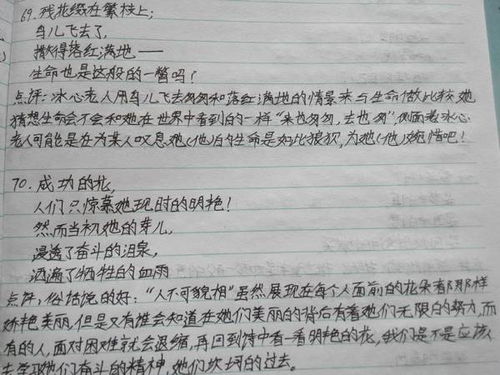 69.残花缀在繁枝上;
鸟儿飞去了,
撒得落红满地——
生命也是这般的一瞥吗?
点评:冰心老人用鸟儿飞去匆匆和落红满地的情景来与生命做比较,她
猜想生命会不会和她在世界中看到的一样"来也匆匆,去也匆"侧面老冰心
老人可能是在为某人叹息她(他)的生命是如比狼狈,为她(他)惋惜吧!
70.成功的花,
人们只惊慕她现时的明艳!
然而当初她的芽儿,
浸透了奋斗的泪泉,
洒遍了牺牲的血雨
点评:俗话说的好:"人不可貌相"虽然展现在每个人面前的花朵有那那样
娇艳美丽,但是又有谁会知道在她们美丽的背后有着她们无限的努力,而
有的人,面对困难就会退缩,再回到诗中看一看明艳的花,我们是不是应该
去学习她们奋斗的精神,她们坎坷的过去。